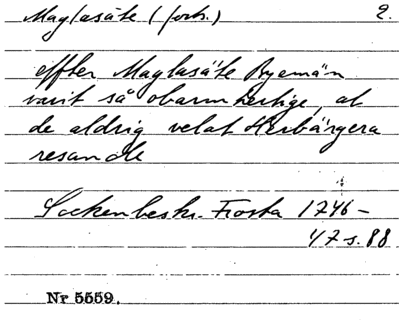 Maglasäte (forts.) 2.
effter Maglasäte Byemän
varit så obarmhertige, at
de aldrig velat Herbärgera
resande
Sockenbeskr. Frosta 1746-
47 s. 88
Nr 5559.